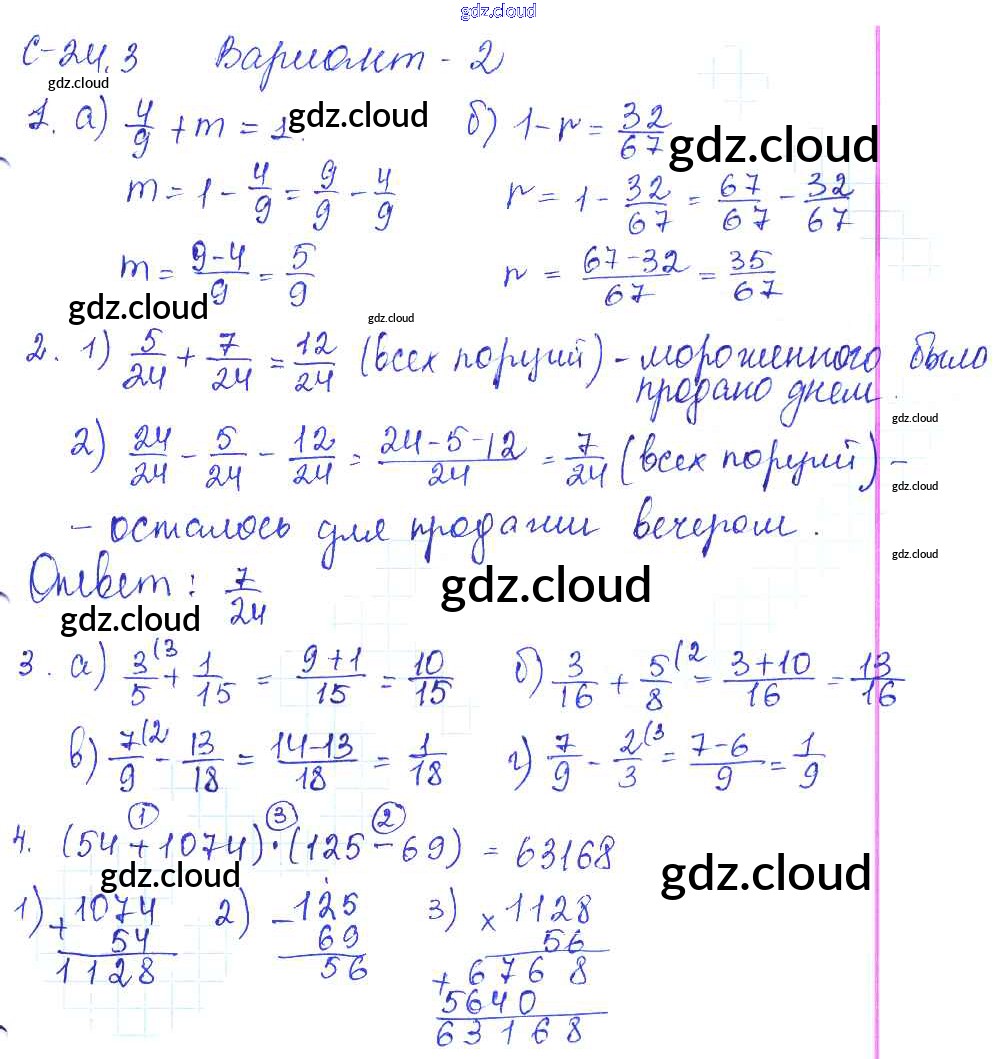 gdz.cloud
С-24.3 Вариант - 2
gdz.cloud
1. а) 4/9 + m = 1. gdz.cloud б) 1 - n = 32/67 gdz.cloud
m = 1 - 4/9 = 9/9 - 4/9 n = 1 - 32/67 = 67/67 - 32/67
m = 9-4/9 = 5/9 n = 67-32/67 = 35/67
gdz.cloud gdz.cloud
2. 1) 5/24 + 7/24 = 12/24 (всех порций) - мороженного было
продано днем.
gdz.cloud
2) 24/24 - 5/24 - 12/24 = 24-5-12/24 = 7/24 (всех порций) -
gdz.cloud
- осталось для продажи вечером.
gdz.cloud
Ответ: 7/24 gdz.cloud
gdz.cloud
3. а) 3/5 (3 + 1/15 = 9+1/15 = 10/15 б) 3/16 + 5/8 (2 = 3+10/16 = 13/16
в) 7/9 (2 - 13/18 = 14-13/18 = 1/18 г) 7/9 - 2/3 (3 = 7-6/9 = 1/9
1 3 2
4. (54 + 1074) · (125 - 69) = 63168
gdz.cloud gdz.cloud gdz.cloud
1) + 1074 2) - 125 3) × 1128
54 69 56
1128 56 + 6768
5640
63168